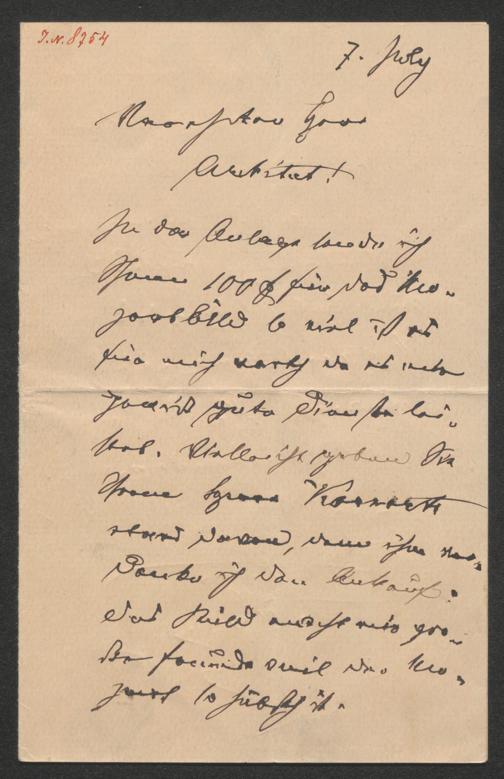 J.N. 8754
7. July
Verehrter Herr
Architect!
In der Anlage sende ich
Ihnen 100 f für das Mo-
zartbild so viel ist es
für mich werth da es mir
gute Dienste lei-
stet. Vielleicht geben Sie
Ihrem Herrn
etwas davon, denn ihm ver-
danke ich den Ankauf.
Das Bild macht mir gro-
ße Freude weil der Mo-
zart so hübsch ist.